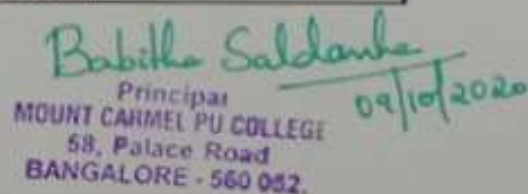 Babitha Saldanha
09/10/2020
Principal
MOUNT CARMEL PU COLLEGE
58, Palace Road
BANGALORE - 560 052.